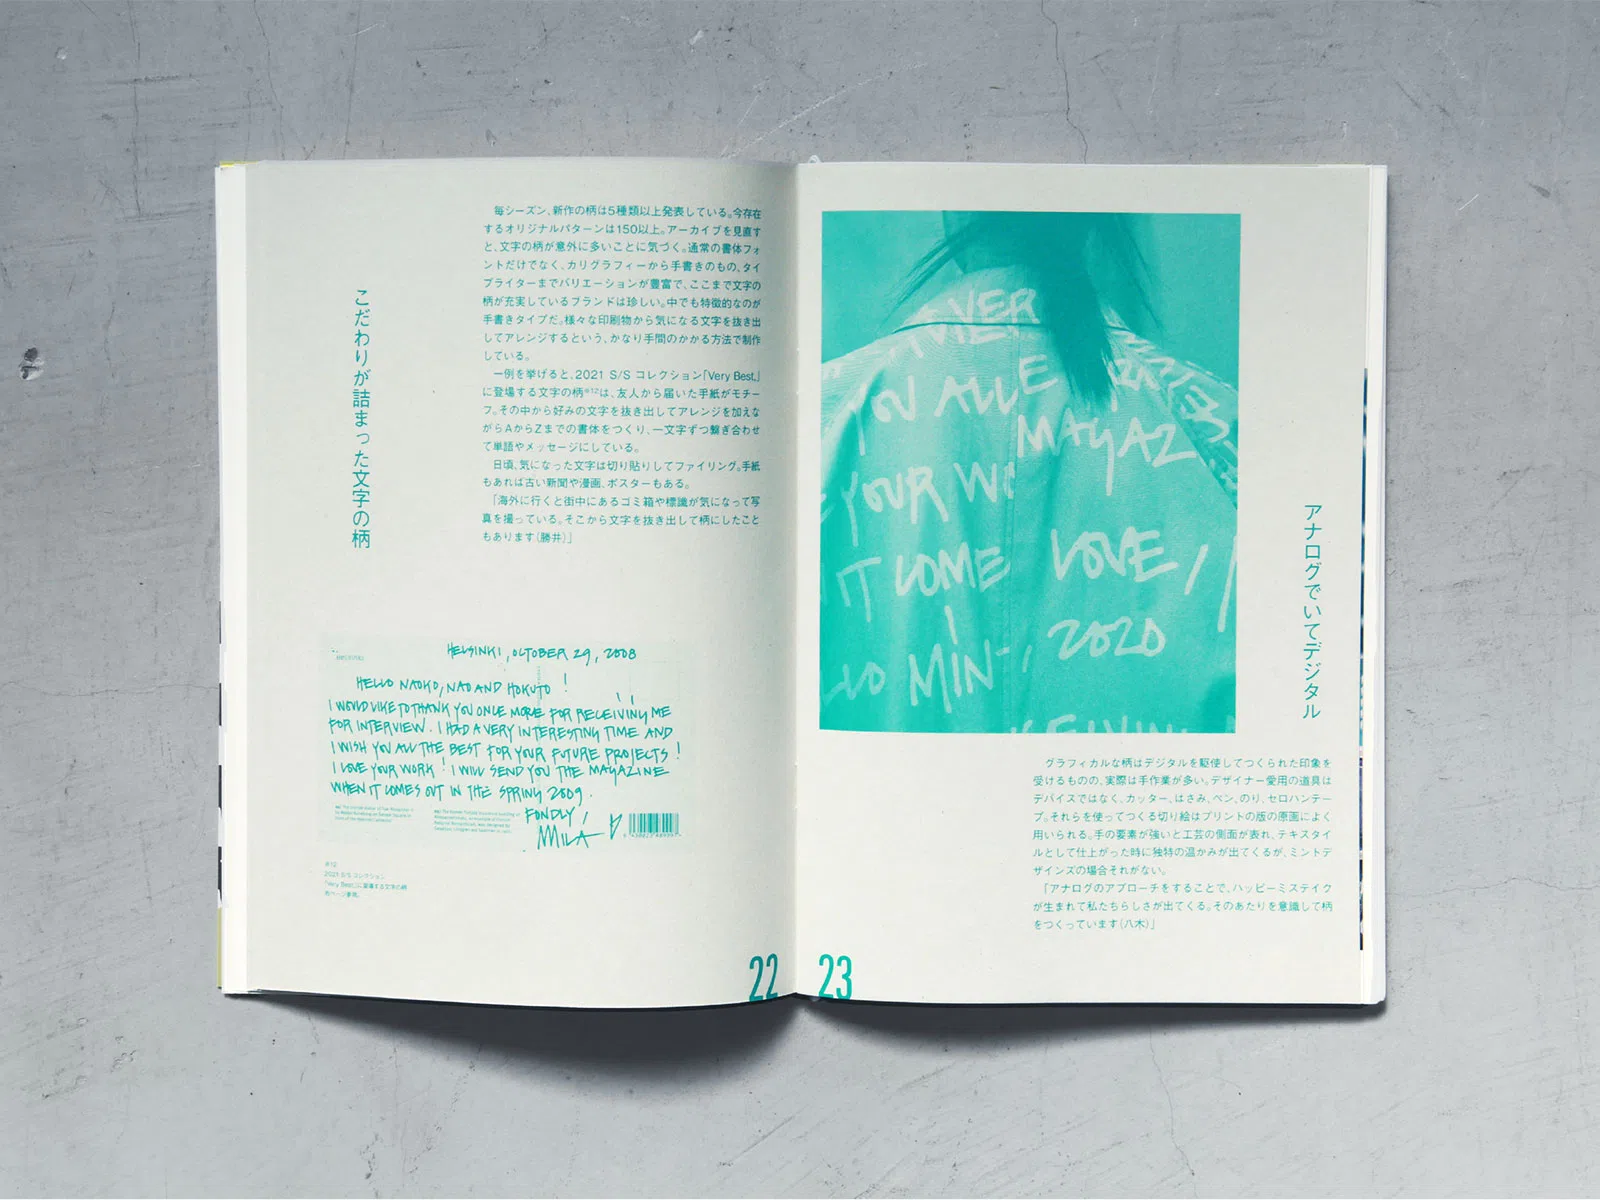 こだわりが詰まった文字の柄
毎シーズン、新作の柄は5種類以上発表している。今存在
するオリジナルパターンは150以上。アーカイブを見直す
と、文字の柄が意外に多いことに気づく。通常の書体フォ
ントだけでなく、カリグラフィーから手書きのもの、タイ
プライターまでバリエーションが豊富で、ここまで文字の
柄が充実しているブランドは珍しい。中でも特徴的なのが
手書きタイプだ。様々な印刷物から気になる文字を抜き出
してアレンジするという、かなり手間のかかる方法で制作
している。
一例を挙げると、2021 S/S コレクション「Very Best,」
に登場する文字の柄※12は、友人から届いた手紙がモチー
フ。その中から好みの文字を抜き出してアレンジを加えな
がらAからZまでの書体をつくり、一文字ずつ繋ぎ合わせ
て単語やメッセージにしている。
日頃、気になった文字は切り貼りしてファイリング。手紙
もあれば古い新聞や漫画、ポスターもある。
「海外に行くと街中にあるゴミ箱や標識が気になって写
真を撮っている。そこから文字を抜き出して柄にしたこと
もあります(勝井)」
HELSINKI, OCTOBER 29, 2008
HELLO NAOKO, NAO AND HOKUTO!
I WOULD LIKE TO THANK YOU ONCE MORE FOR RECEIVING ME
FOR INTERVIEW. I HAD A VERY INTERESTING TIME AND
I WISH YOU ALL THE BEST FOR YOUR FUTURE PROJECTS!
I LOVE YOUR WORK! I WILL SEND YOU THE MAGAZINE
WHEN IT COMES OUT IN THE SPRING 2009.
FONDLY,
MILA
※12
2021 S/S コレクション
「Very Best,」に登場する文字の柄
22
VER
YOU ALL
MAGAZ
YOUR W
IT COME LOVE
MIN 2020
アナログでいてデジタル
グラフィカルな柄はデジタルを駆使してつくられた印象を
受けるものの、実際は手作業が多い。デザイナー愛用の道具は
デバイスではなく、カッター、はさみ、ペン、のり、セロハンテー
プ。それらを使ってつくる切り絵はプリントの版の原画によく
用いられる。手の要素が強いと工芸の側面が表れ、テキスタイ
ルとして仕上がった時に独特の温かみが出てくるが、ミントデ
ザインズの場合それがない。
「アナログのアプローチをすることで、ハッピーミステイク
が生まれて私たちらしさが出てくる。そのあたりを意識して柄
をつくっています(八木)」
23